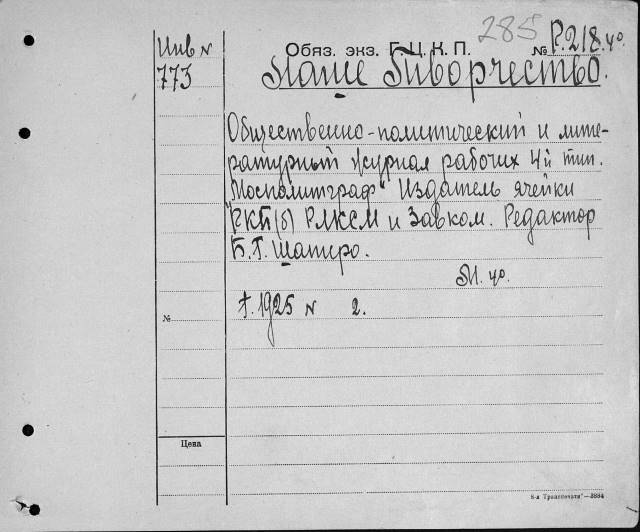 285
Инв №
773
Обяз. экз. Г. Ц. К. П.
№ Р.218.4º.
Наше Творчество.
Общественно-политический и лите-
ратурный журнал рабочих 4й тип.
"Мосполиграф" Издатель ячейки
РКП(б) РЛКСМ и Завком. Редактор
Б.Г. Шапиро.
М. 4º.
1925 № 2.
№
Цена
8-я Транспечати"—3884